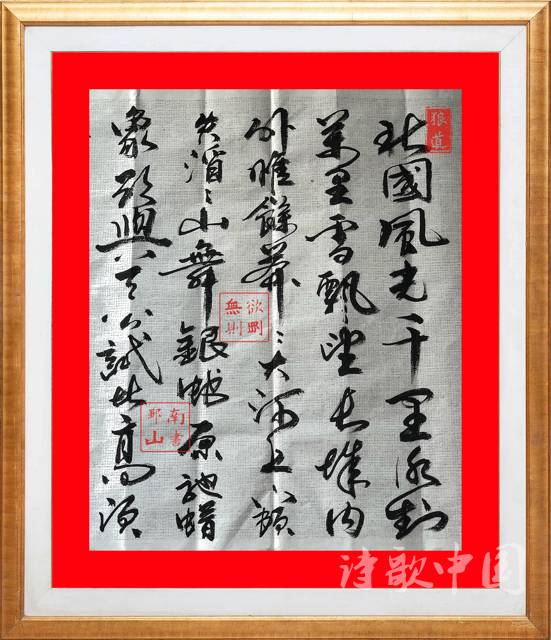 狼道
北國風光千里冰封
萬里雪飄望長城内
外惟餘莽〻大河上下頓
失滔〻山舞銀蛇原馳蜡
象欲與天公試比高須
無欲
則剛
南
山書
诗歌中国